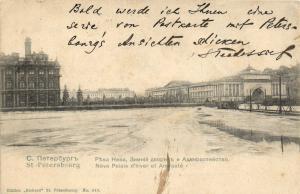 Bald werde ich Ihnen eine
serie von Postkarte mit Peters-
bourgs Ansichten schicken
С. Петербургъ
St-Pétersbourg
Рѣка Нева, Зимній дворецъ и Адмиралтейство.
Neva Palais d'hiver et Amirauté
St. Pétersbourg. No.